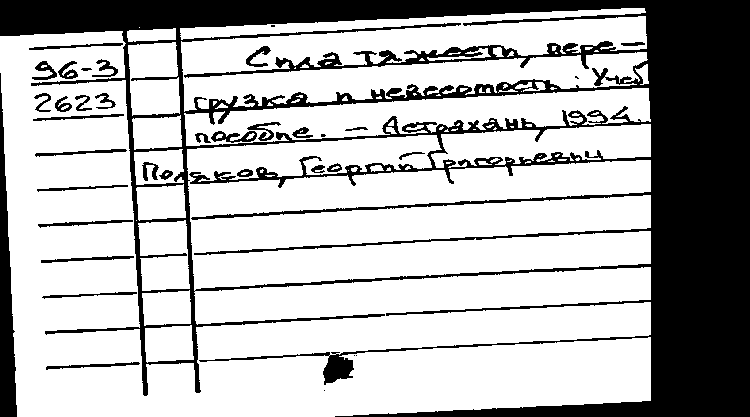 96-3 Сила тяжести, пере-
2623 грузка и невесомость: Учеб
пособие. - Астрахань, 1994.
Поляков, Георгий Григорьевич